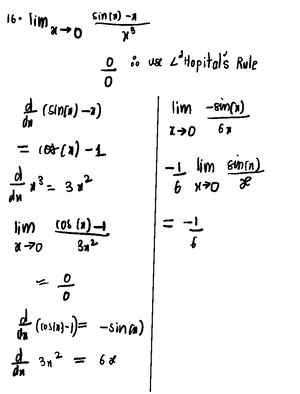 16. lim x→0 sin(x) - x / x³
0/0 ∴ use L'Hopital's Rule
d/dx (sin(x) - x)
= cos(x) - 1
d/dx x³ = 3x²
lim x→0 cos(x) - 1 / 3x²
= 0/0
d/dx (cos(x) - 1) = - sin(x)
d/dx 3x² = 6x
lim x→0 -sin(x) / 6x
-1/6 lim x→0 sin(x) / x
= -1/6